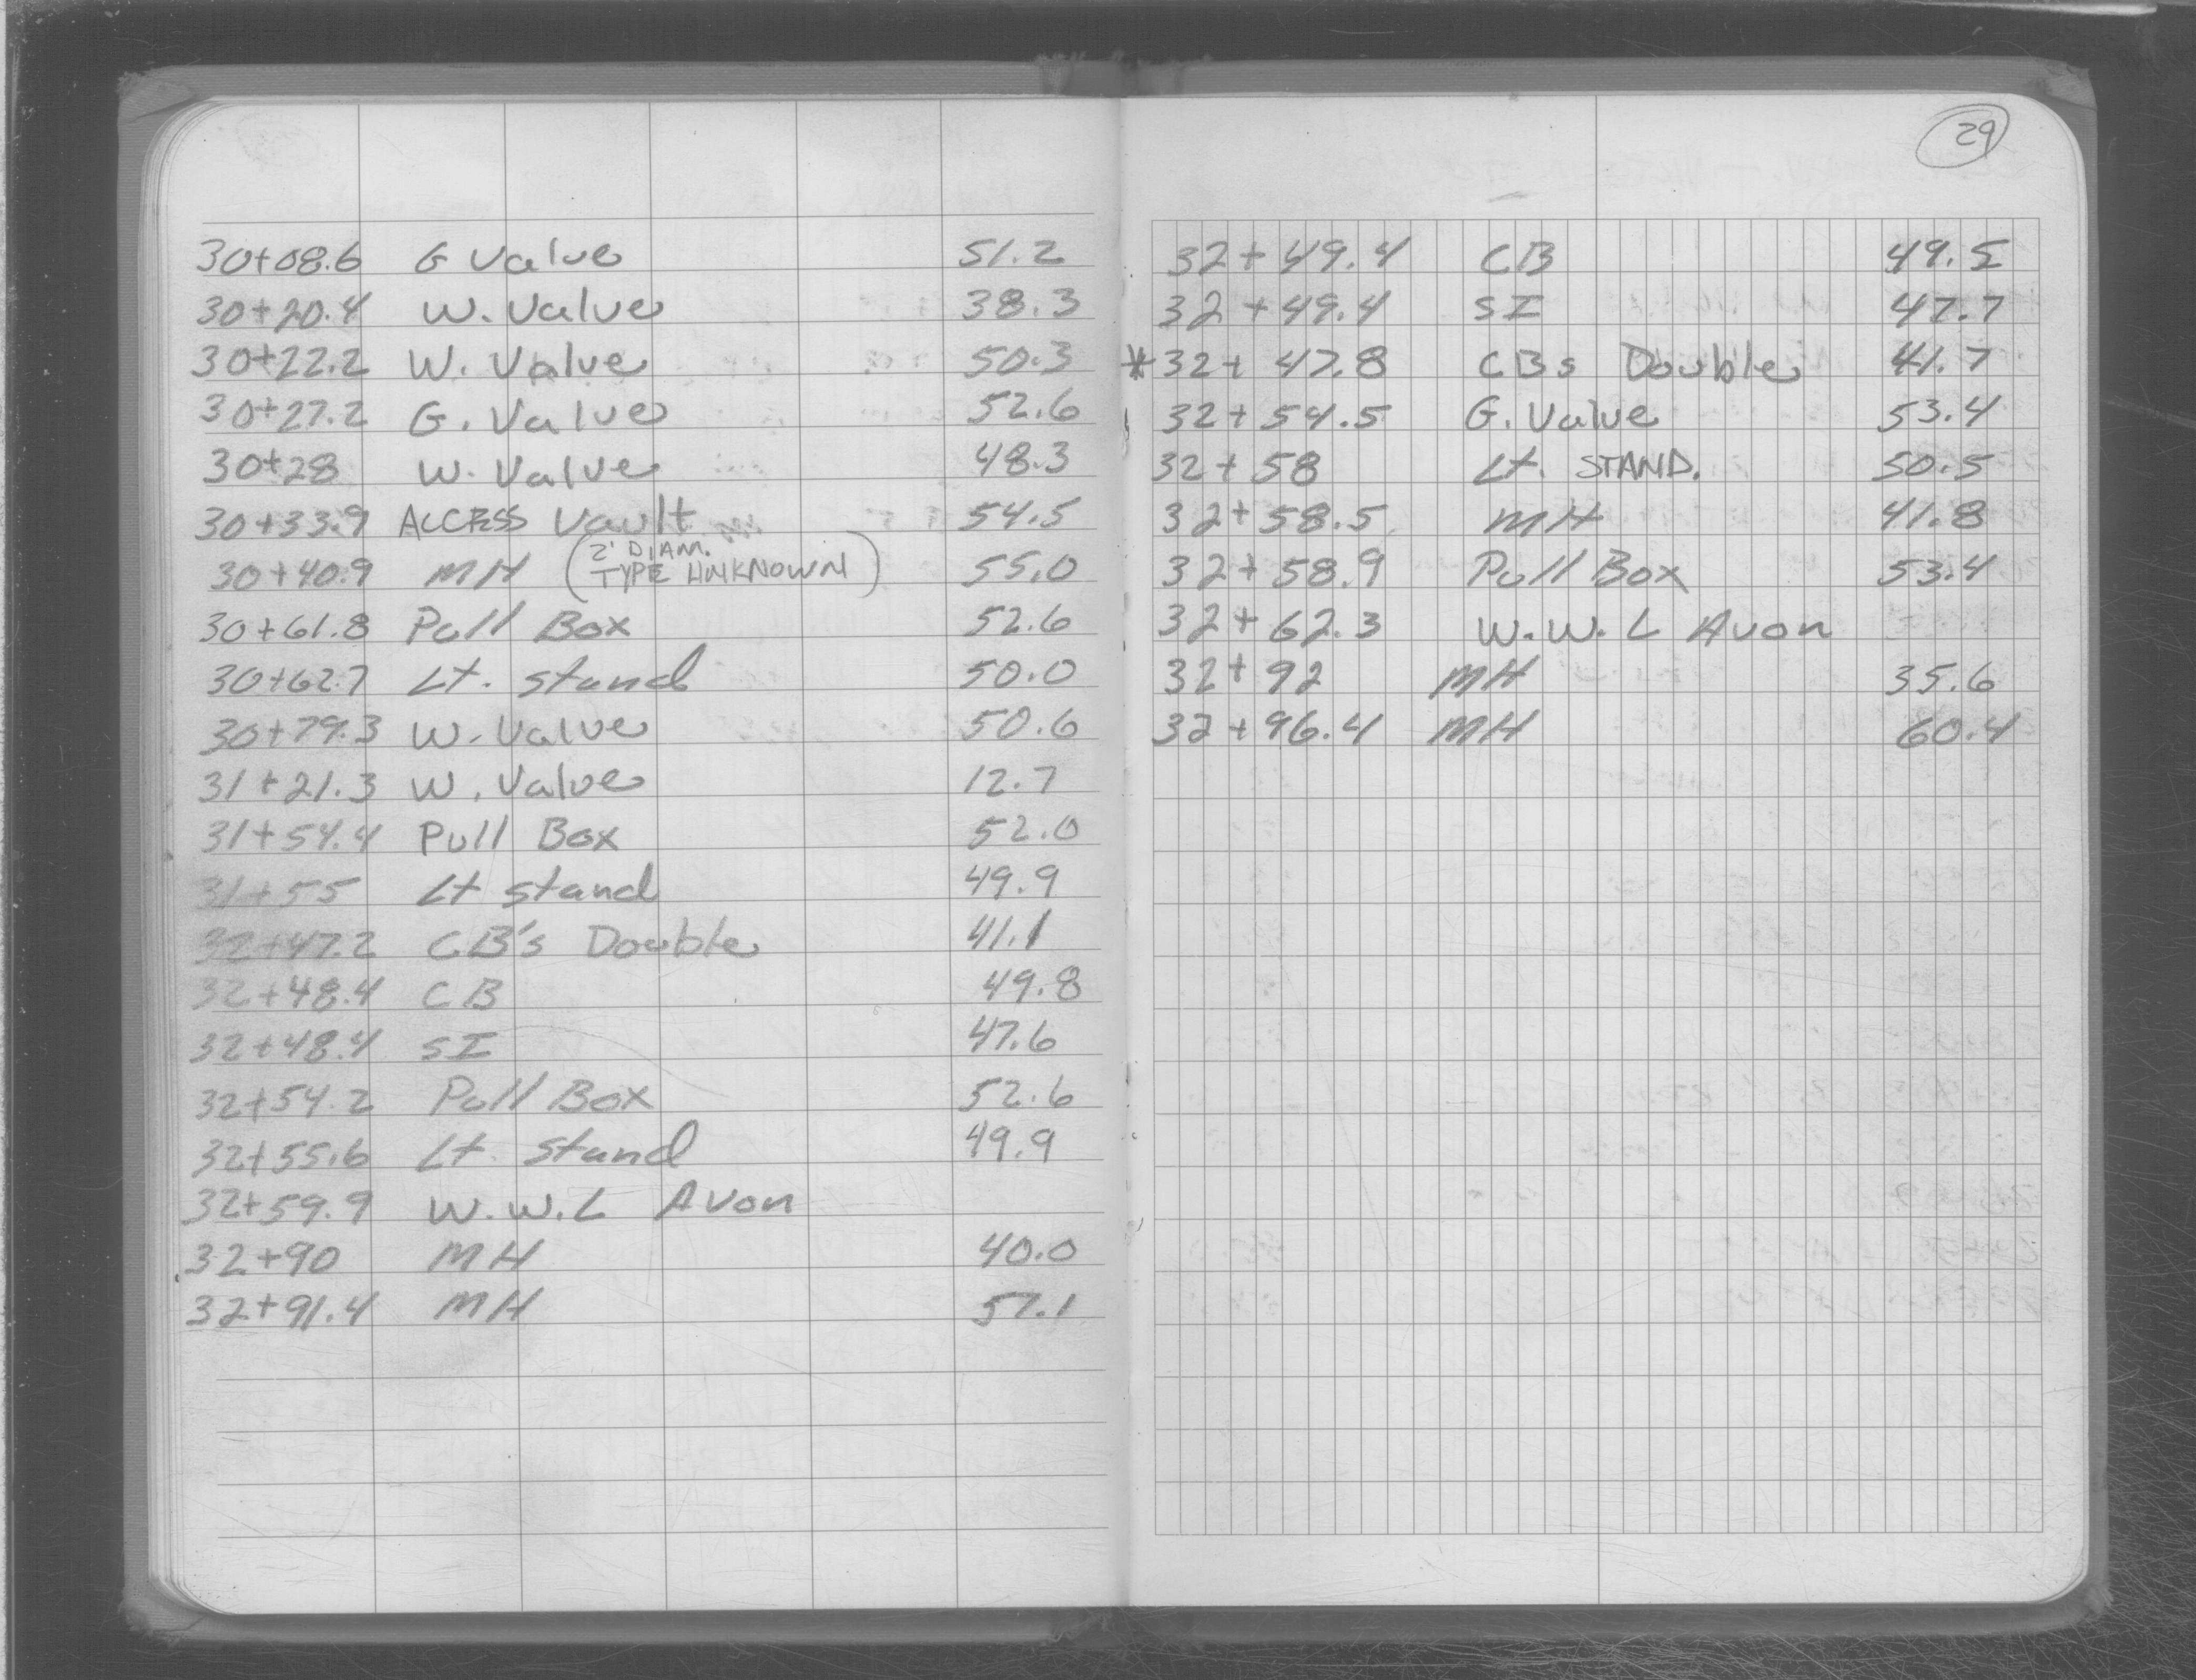 30+08.6 G Valve 51.2
30+20.4 W. Valve 38.3
30+22.2 W. Valve 50.3
30+27.2 G. Valve 52.6
30+28 W. Valve 48.3
30+33.9 ACCESS Vault 54.5
30+40.9 MH (2' DIAM. TYPE UNKNOWN) 55.0
30+61.8 Pull Box 52.6
30+62.7 Lt. stand 50.0
30+79.3 W. Valve 50.6
31+21.3 W. Valve 12.7
31+54.4 Pull Box 52.0
31+55 Lt stand 49.9
32+47.2 CB's Double 41.1
32+48.4 CB 49.8
32+48.4 SI 47.6
32+54.2 Pull Box 52.6
32+55.6 Lt. stand 49.9
32+59.9 W.W.L Avon
32+90 MH 40.0
32+91.4 MH 57.1
29
32+49.4 CB 49.5
32+49.4 SI 47.7
*32+47.8 CBs Double 41.7
32+54.5 G. Valve 53.4
32+58 Lt. STAND. 50.5
32+58.5 MH 41.8
32+58.9 Pull Box 53.4
32+62.3 W.W.L Avon
32+92 MH 35.6
32+96.4 MH 60.4